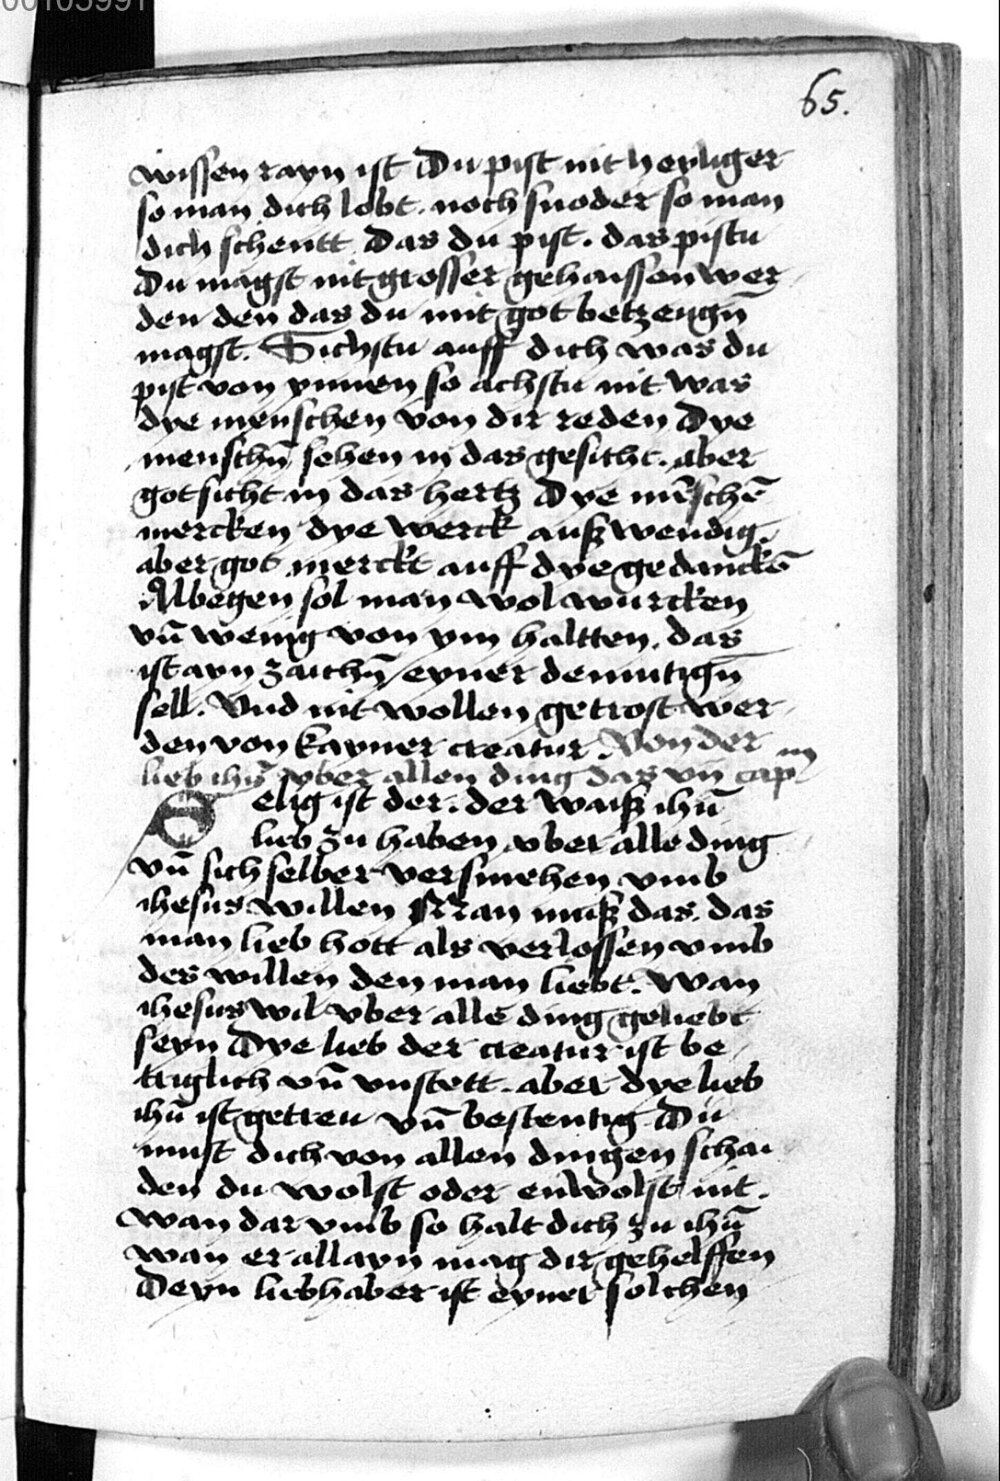 00103991
65.
wissen rayn ist Du pist nit heyliger
so man dich lobt. noch snoder so man
dich schentt. Das du pist. das pistu
Du magst nit grosser gehaissen wer
den den das du mit got betzeugn̄
magst. Sichstu auff dich was du
pist von ynnen so achstu nit was
dye menschen von dir reden Dye
menschn̄ sehen in das gesicht. aber
got sicht in das hertz Dye mēschē
mercken dye werck auszwendig.
aber got merckt auff dye gedanckē
Albegen sol man wol wurcken
vn̄ wenig von ym haltten. das
ist ayn zaichn̄ eyner demutign̄
sell. Vnd nit wollen getrost wer
den von kayner creatur Von der
lieb ihū vber allen ding das vij cap
Selig ist der. der waisz ihū
lieb zu haben vber alle ding
vn̄ sich selber versmehen vmb
ihesus willen Man musz das. das
man lieb hott als verlossen vmb
des willen den man liebt. Wan
ihesus wil vber alle ding geliebt
seyn Dye lieb der creatur ist be
triglich vn̄ vnstett. aber dye lieb
ihū ist getreu vn̄ bestentig Du
must dich von allen dingen schai
den du wolst oder enwolst nit.
wan dar vmb so halt dich zu ihū
wan er allayn mag dir gehelffen
Deyn liebhaber ist eyner solchen